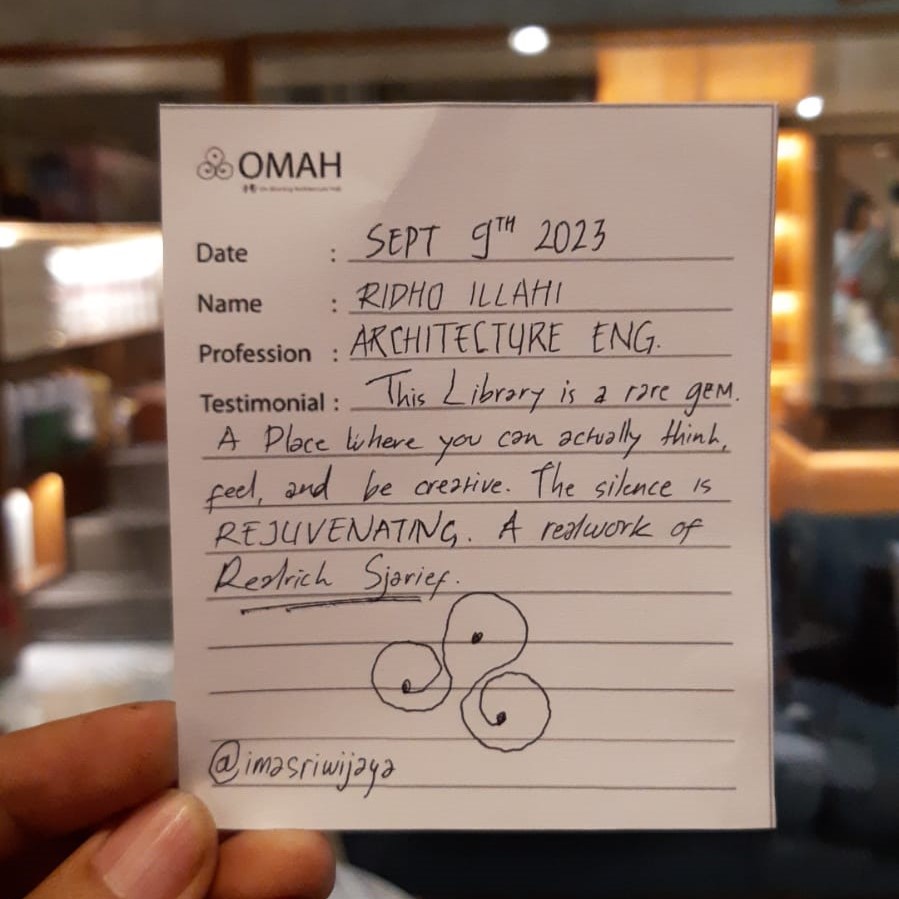 OMAH
Date : SEPT 9TH 2023
Name : RIDHO ILLAHI
Profession : ARCHITECTURE ENG.
Testimonial : This Library is a rare gem.
A Place Where you can actually think,
feel, and be creative. The silence is
REJUVENATING. A realwork of
Realrich Sjarief.
@imasriwijaya